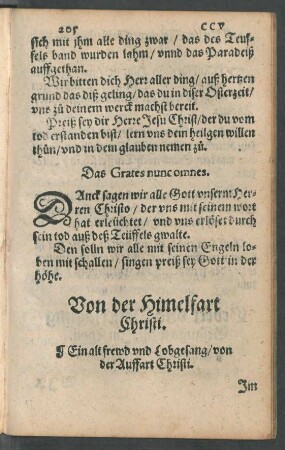 205 CCV
sich mit jhm alle ding zwar / das des Teuf-
fels band wurden lahm / vnnd das Paradeiß
auffgethan.
Wir bitten dich Herr aller ding / auß hertzen
grund das diß geling / das du in diser Osterzeit /
vns zu deinem werck machst bereit.
Preiß sey dir Herre Jesu Christ / der du vom
tod erstanden bist / lern vns dein heilgen willen
thün / vnd in dem glauben nemen zů.
Das Grates nunc omnes.
DAnck sagen wir alle Gott vnserm Her-
ren Christo / der vns mit seinem wort
hat erleüchtet / vnd vns erlöset durch
sein tod auß deß Teüffels gwalte.
Den solln wir alle mit seinen Engeln lo-
ben mit schallen / singen preiß sey Gott in der
höhe.
Von der Himelfart
Christi.
¶ Ein alt frewd vnd Lobgesang / von
der Auffart Christi.
Im